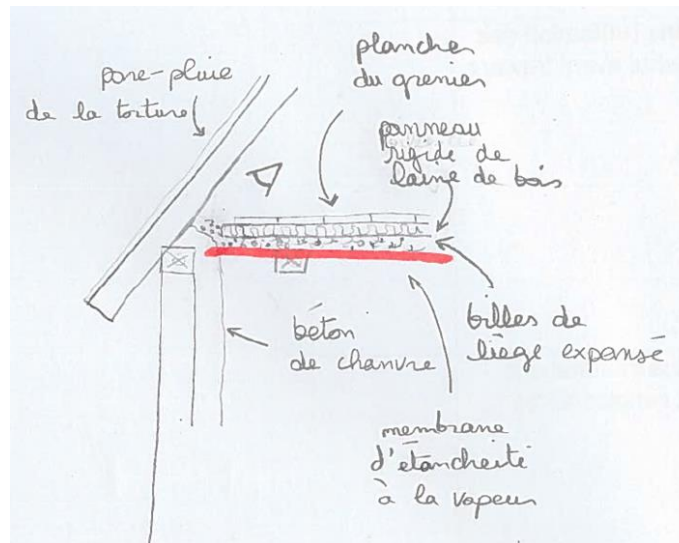 pare-pluie
de la toiture
plancher
du grenier
panneau
rigide de
laine de bois
béton
de chanvre
billes de
liège expansé
membrane
d'étancheité
à la vapeur